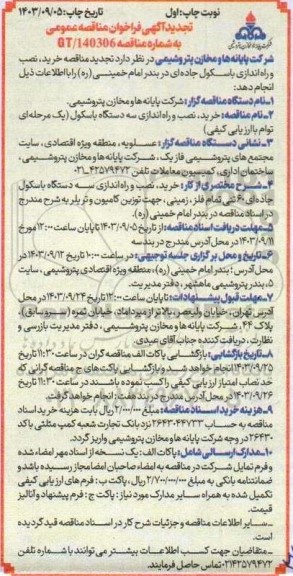 نوبت چاپ: اول تاریخ چاپ: ۱۴۰۳/۰۹/۰۵
تجدید آگهی فراخوان مناقصه عمومی
به شماره مناقصه GT/140306
شرکت پایانه ها و مخازن پتروشیمی در نظر دارد تجدید مناقصه خرید، نصب
و راه اندازی باسکول جاده ای در بندر امام خمینی (ره) را با اطلاعات ذیل
انجام دهد:
۱-نام دستگاه مناقصه گزار: شرکت پایانه ها و مخازن پتروشیمی.
۲-نام مناقصه: خرید، نصب و راه اندازی سه دستگاه باسکول (یک مرحله ای
توام با ارزیابی کیفی)
۳-نشانی دستگاه مناقصه گزار: عسلویه، منطقه ویژه اقتصادی، سایت
مجتمع های پتروشیمی فاز یک، شرکت پایانه ها و مخازن پتروشیمی،
ساختمان اداری، کمیسیون معاملات تلفن ۴۲۵۷۹۴۷۲-۰۲۱
۴-شرح مختصری از کار: خرید، نصب و راه اندازی سه دستگاه باسکول
جاده ای ۶۰ تنی تمام فلز، زمینی، جهت توزین کامیون و تریلر به شرح مندرج
در اسناد مناقصه در بندر امام خمینی (ره).
۵-مهلت دریافت اسناد مناقصه: از تاریخ ۱۴۰۳/۰۹/۰۵ تا پایان ساعت ۱۲:۰۰ مورخ
۱۴۰۳/۰۹/۱۱ در محل آدرس مندرج در بند سه
۶-تاریخ و محل برگزاری جلسه توجیهی: در ساعت ۱۰:۰۰ تاریخ ۱۴۰۳/۰۹/۱۳ در
محل آدرس: بندر امام خمینی (ره)، منطقه ویژه اقتصادی پتروشیمی، سایت
۵، بندر پتروشیمی ماهشهر، دفتر مدیریت.
۷-مهلت قبول پیشنهادات: تا پایان ساعت ۱۲:۰۰ تاریخ ۱۴۰۳/۰۹/۲۴ در محل
آدرس تهران، خیابان ولیعصر، بالاتر از میرداماد، خیابان ثمره (سرو سابق)،
پلاک ۴۴، شرکت پایانه ها و مخازن پتروشیمی، دفتر مدیریت بازرسی و
نظارت، دریافت کننده جناب آقای عبدی
۸-تاریخ بازگشایی: بازگشایی پاکات الف مناقصه گران در ساعت ۱۱:۳۰ تاریخ
۱۴۰۳/۰۹/۲۵ انجام خواهد شد و بازگشایی پاکت های ج مناقصه گرانی که
حد نصاب امتیاز ارزیابی کیفی را کسب نموده باشند در ساعت ۱۱:۳۰ تاریخ
۱۴۰۳/۰۹/۲۶ در محل آدرس مندرج در بند هفت، انجام خواهد گرفت.
۹-هزینه خرید اسناد مناقصه: مبلغ ۲/۰۰۰/۰۰۰ ریال بابت هزینه خرید اسناد
مناقصه به حساب ۲۶۴۳۰۴۴۷۳۳ نزد بانک تجارت شعبه کمپ مثلثی با کد
۲۶۴۳۰ در وجه شرکت پایانه ها و مخازن پتروشیمی واریز گردد.
۱۰-مدارک ارسالی شامل: پاکات الف: یک نسخه از اسناد مهر امضاء شده
و فرم تمایل شرکت در مناقصه به امضاء صاحبان امضا مجاز رسیده باشد و
ضمانتنامه بانکی به مبلغ ۲/۷۰۰/۰۰۰/۰۰۰ ریال، پاکت ب: فرم های ارزیابی کیفی
تکمیل شده به همراه سایر مدارک مورد نیاز؛ پاکت ج: فرم پیشنهاد و آنالیز
قیمت.
...سایر اطلاعات مناقصه و جزئیات شرح کار در اسناد مناقصه قید گردیده
است.
...متقاضیان جهت کسب اطلاعات بیشتر می توانند با شماره تلفن
۰۲۱۴۲۵۷۹۴۷۲ تماس حاصل فرمایند.